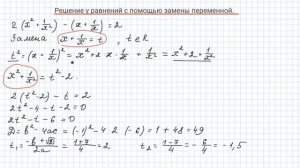 Решение у равнений с помощью замены переменной.
2 (x² + 1/x²) - (x + 1/x) = 2
Замена x + 1/x = t , t ∈ R
t² = (x + 1/x)² = x² + 2 · x · 1/x + 1/x² = x² + 2 + 1/x²
x² + 1/x² = t² - 2.
2 (t² - 2) - t = 2
2t² - 4 - t - 2 = 0
2t² - t - 6 = 0
D = b² - 4ac = (-1)² - 4 · 2 · (-6) = 1 + 48 = 49
t₁ = (-b + √D)/2a = (1+7)/4 = 2 t₂ = (1-7)/4 = -6/4 = -1,5